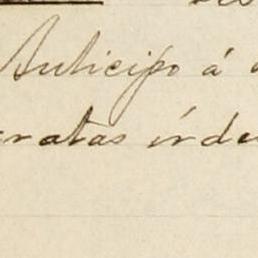 Anticipo á
gratas órde